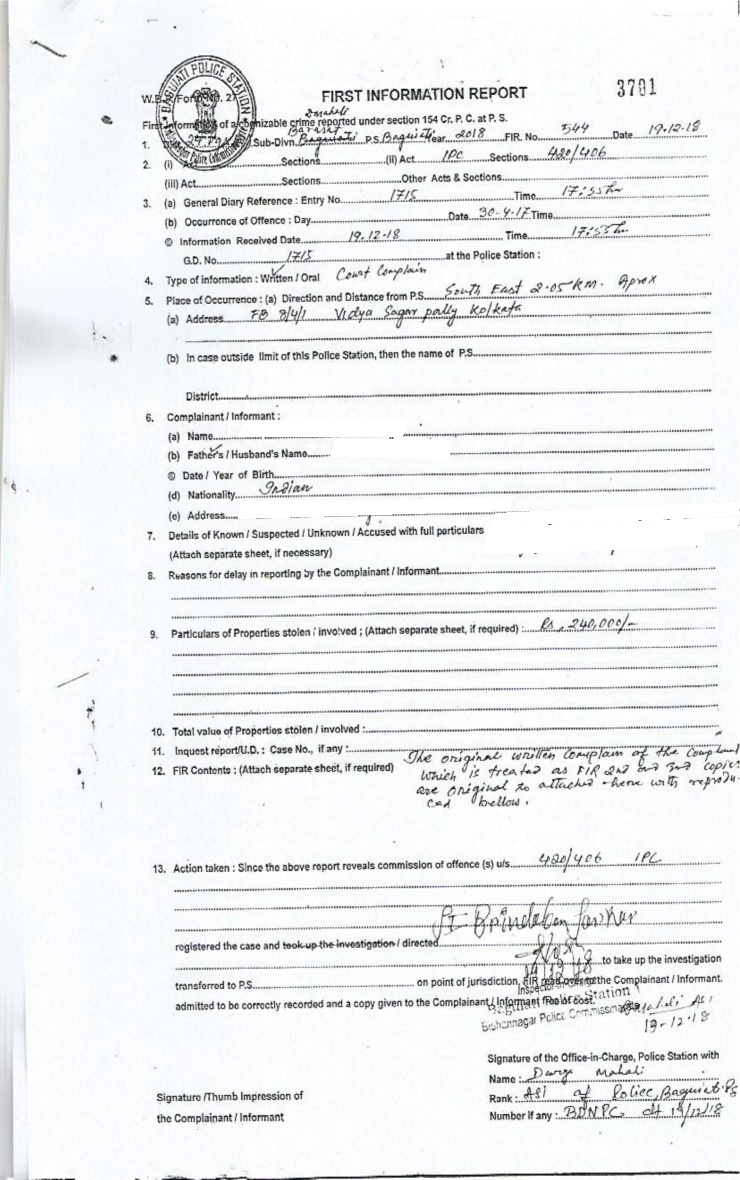 BAGUIATI POLICE STATION
3701
FIRST INFORMATION REPORT
W.B. Form No. 27
First Information of a cognizable crime reported under section 154 Cr. P. C. at P. S.
1. Sub-Divn. Barasat Baguiati P.S. Baguiati Year 2018 FIR. No. 544 Date 19-12-18
2. (i) Act Sections (ii) Act IPC Sections 420/406
(iii) Act Sections Other Acts & Sections
3. (a) General Diary Reference : Entry No. 1715 Time 17:55 hr
(b) Occurrence of Offence : Day Date 30-4-17 Time
© Information Received Date 19.12.18 Time 17:55 hr
G.D. No. 1715 at the Police Station :
4. Type of information : Written / Oral Court Complain
5. Place of Occurrence : (a) Direction and Distance from P.S. South East 2.05 KM. Aprox
(a) Address FB 8/4/1 Vidya Sagar pally Kolkata
(b) In case outside limit of this Police Station, then the name of P.S.
District
6. Complainant / Informant :
(a) Name
(b) Father's / Husband's Name
© Date / Year of Birth
(d) Nationality Indian
(e) Address
7. Details of Known / Suspected / Unknown / Accused with full particulars
(Attach separate sheet, if necessary)
8. Reasons for delay in reporting by the Complainant / Informant
9. Particulars of Properties stolen / involved ; (Attach separate sheet, if required) : Rs. 240,000/-
10. Total value of Properties stolen / involved :
11. Inquest report/U.D. : Case No., if any :
12. FIR Contents : (Attach separate sheet, if required) The original written complain of the
which is treated as FIR 2nd and 3rd copies
are original to attached here with reprodu-
ced bellow.
13. Action taken : Since the above report reveals commission of offence (s) u/s 420/406 IPC
SI Brindaban Sarkar
registered the case and took up the investigation / directed
to take up the investigation
transferred to P.S. on point of jurisdiction, FIR read over to the Complainant / Informant.
admitted to be correctly recorded and a copy given to the Complainant / Informant free of cost.
Baguiati Police Station
Bidhannagar Police Commissionerate
DMahali ASI
19-12-18
Signature of the Office-in-Charge, Police Station with
Name : Durga Mahali
Rank : ASI of Police, Baguiati PS
Number if any : BDNPC dt 19/12/18
Signature /Thumb Impression of
the Complainant / Informant